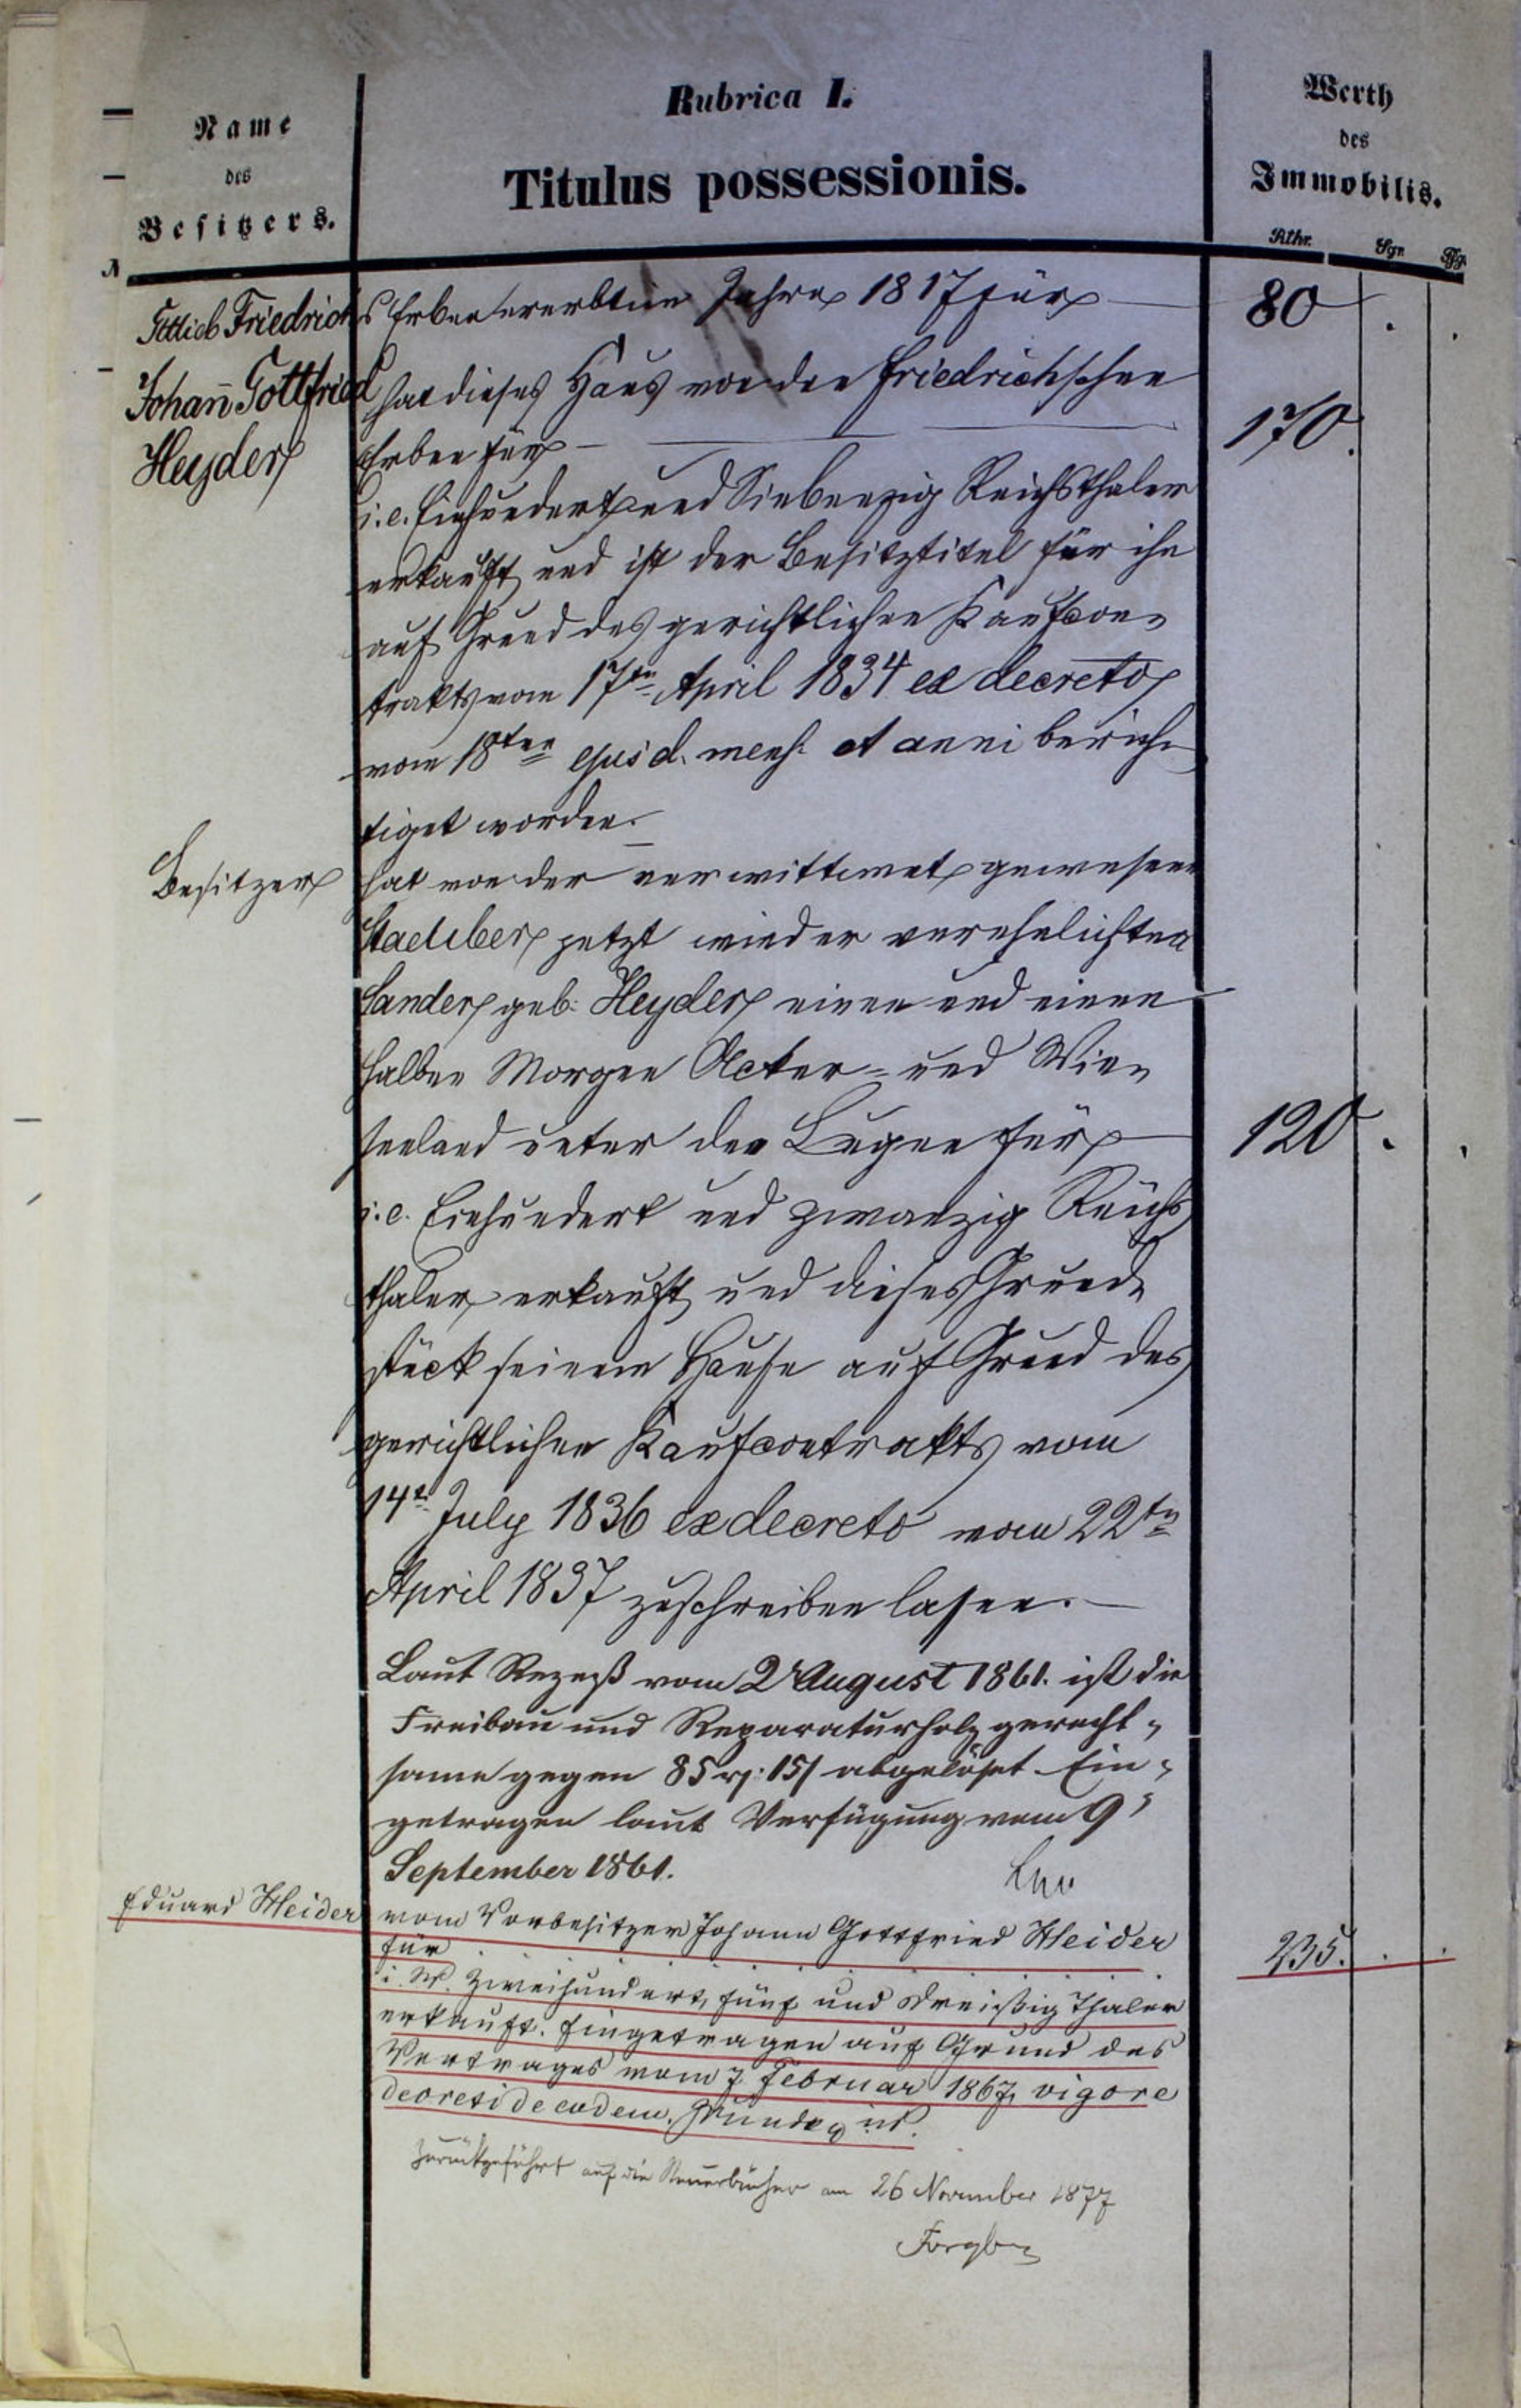 Rubrica I.
Titulus possessionis.
Name
des
Besitzers.
Werth
des
Immobilis.
Rthr. Sgr. Pfg.
Gottlieb Friedrichs Erben ererbten Jahre 1817 für 80 . .
Johann Gottfried hat dieses Haus von den Friedrichschen
Heyder Erben für 170.
i.e. Einhundert und Siebenzig Reichsthaler
erkauft und ist der Besitztitel für ihn
auf Grund des gerichtlichen Kaufcon-
trakts vom 17ten April 1834 ex decreto
vom 18ten ejusd. mens. et anni berich-
tiget worden.
Besitzer hat von der verwittwet gewesenen
jetzt wieder verehelichten
Sander geb. Heyder einen und einen
halben Morgen Acker- und Wie-
seeland unter den Lugen für 120 . .
i.e. Einhundert und zwanzig Reichs
thaler erkauft und dieses Grund-
stück seinem Hause auf Grund des
gerichtlichen Kaufcontrakts vom
14t July 1836 ex decreto vom 22tn
April 1837 zuschreiben lassen.
Laut Rezeß vom 2 August 1861. ist die
Freibau und Reparaturholz gerecht-
same gegen 85 rg: 15 abgelöset. Ein-
getragen laut Verfügung vom 9
September 1861.
Eduard Heider vom Vorbesitzer Johann Gottfried Heider
für 235. . .
i. W. zweihundert, fünf und dreißig Thaler
erkauft. Eingetragen auf Grund des
Vertrages vom 7. Februar 1867, vigore
decreti de eodem.
Zurückgeführt auf die Steuerbücher am 26 November 1877